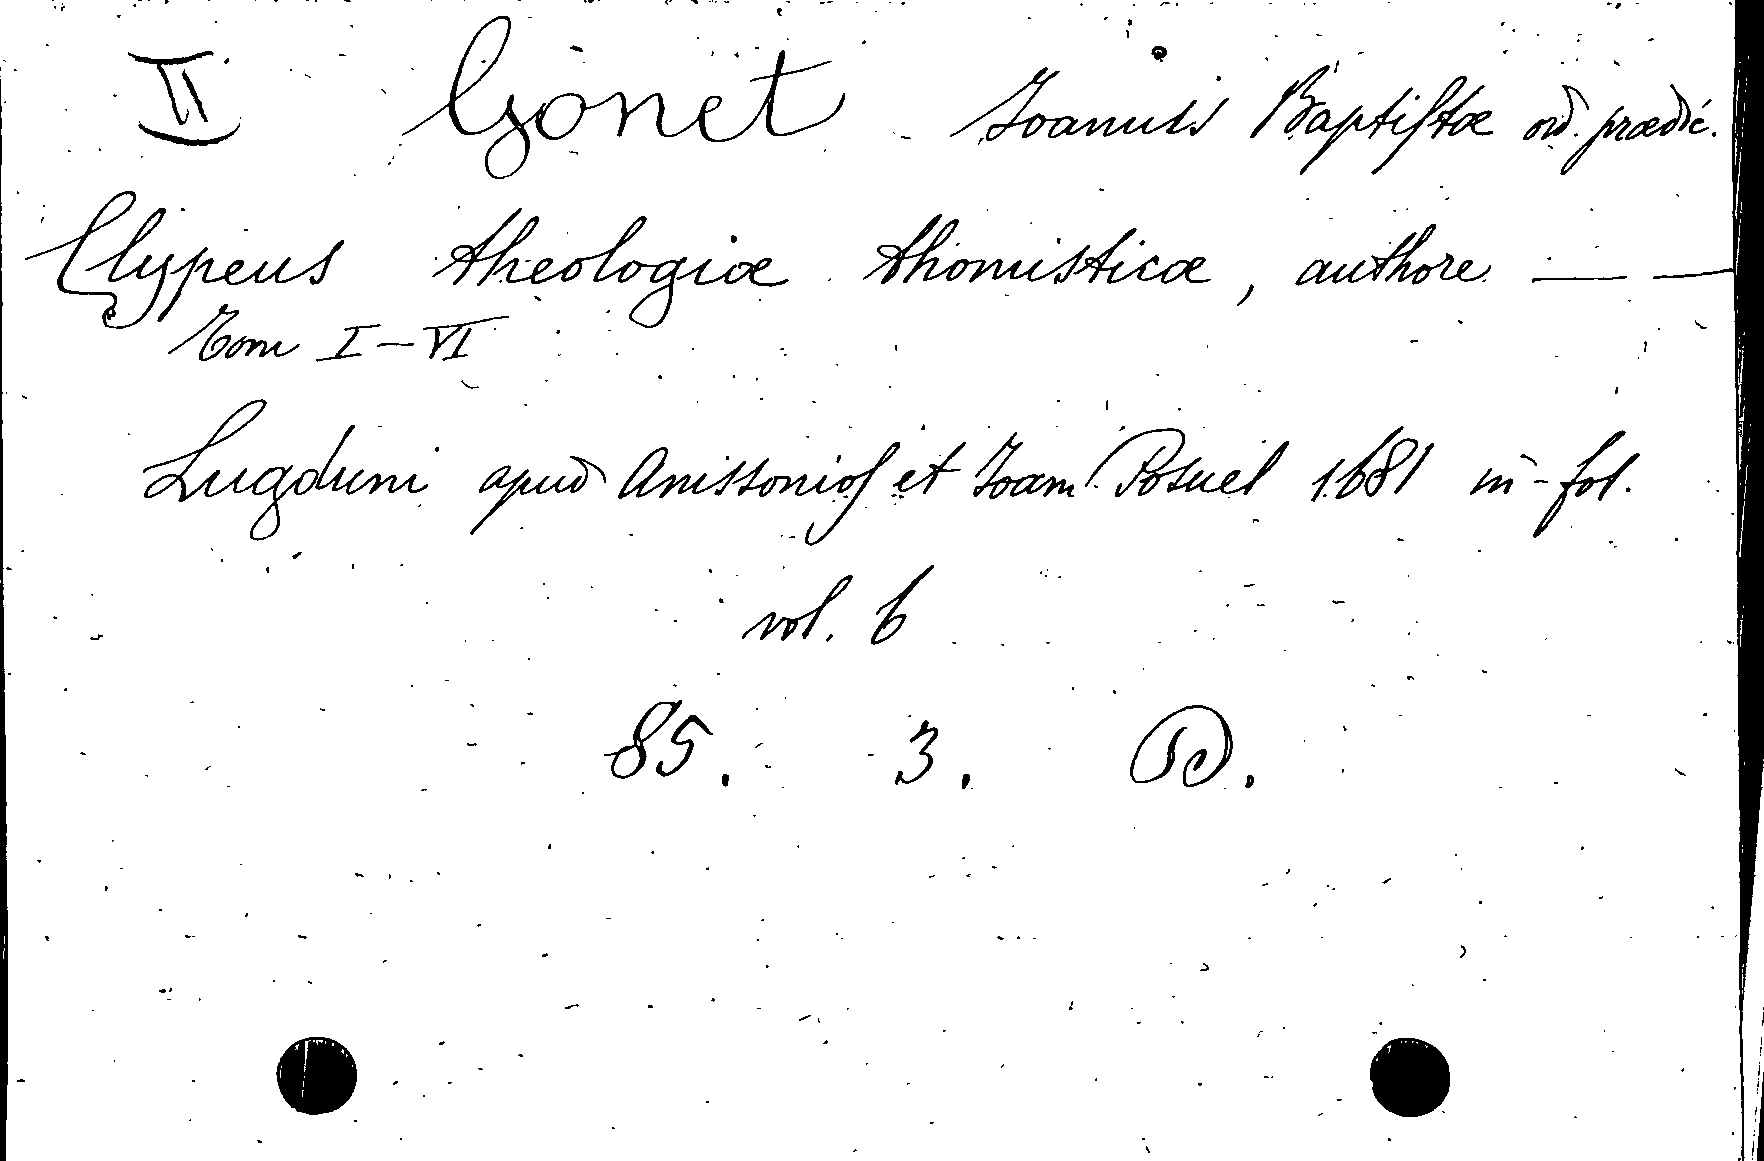 II Gonet Joannis Baptistæ ord. prædic.
Clypeus theologiæ thomisticæ, authore — —
Tom I-VI
Lugduni apud Anissonios et Joam. Posuel 1681 in-fol.
vol. 6
85. 3. D.